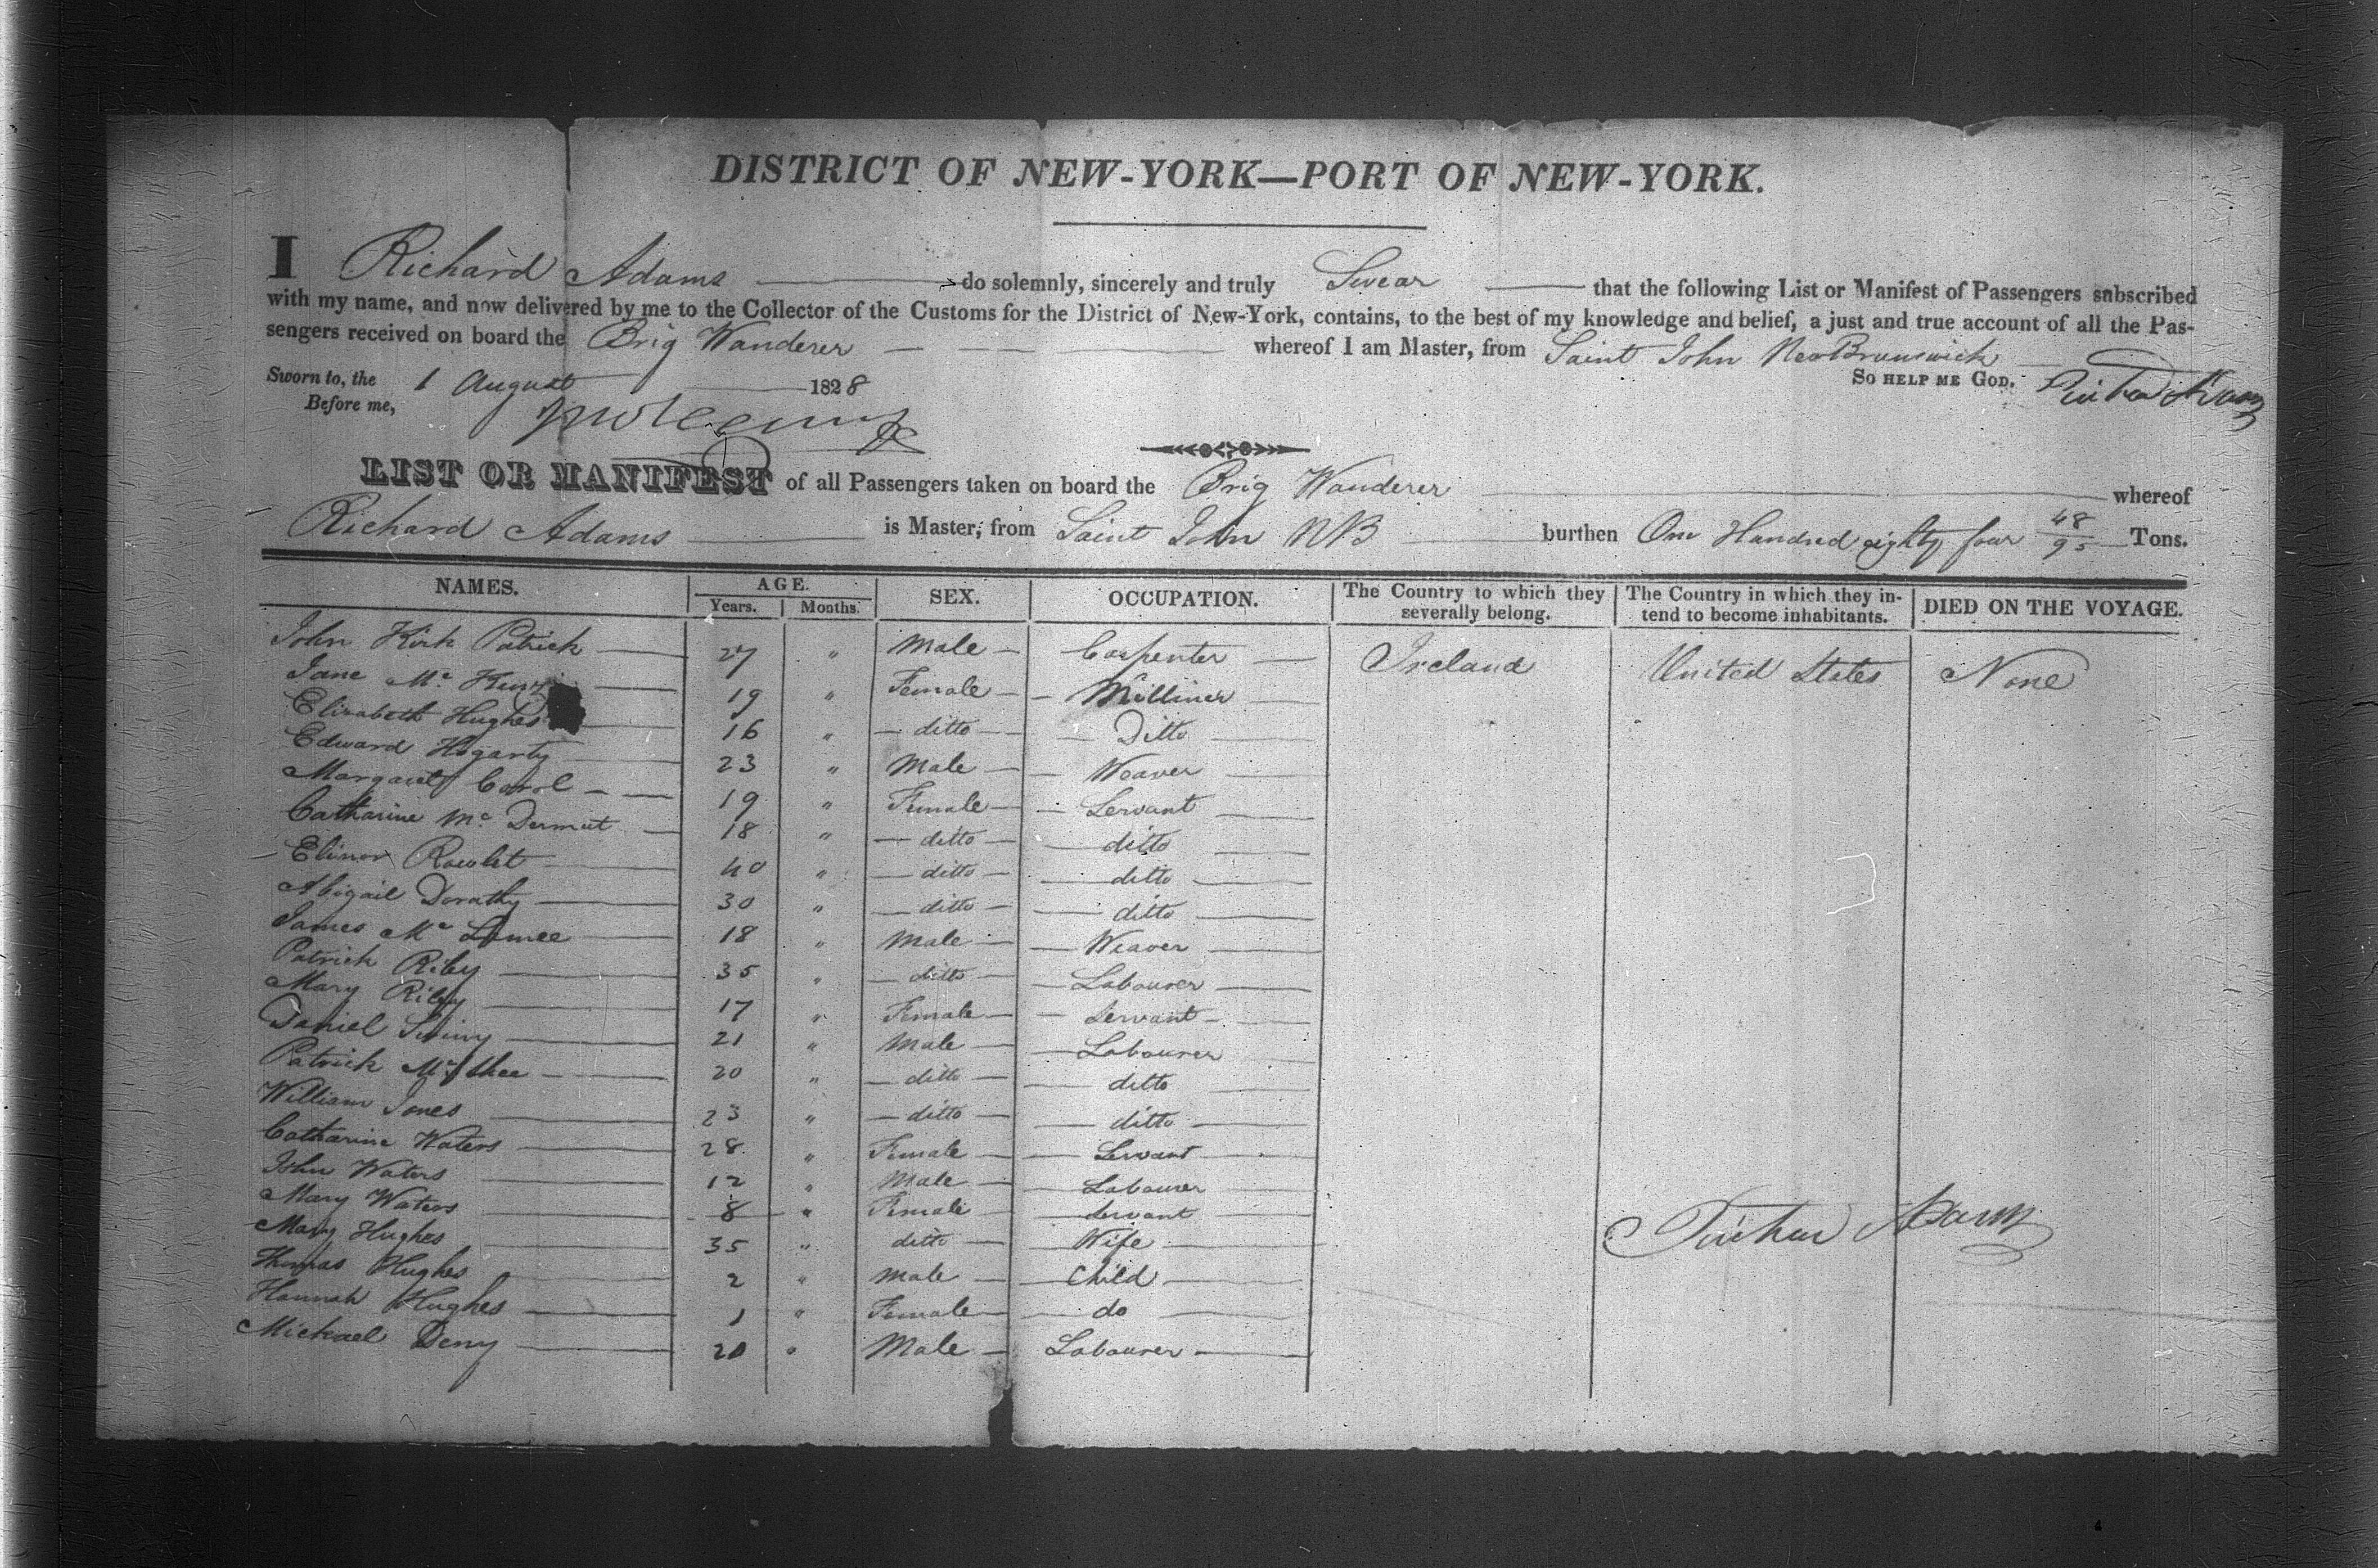 DISTRICT OF NEW-YORK—PORT OF NEW-YORK.
I Richard Adams do solemnly, sincerely and truly Swear that the following List or Manifest of Passengers subscribed
with my name, and now delivered by me to the Collector of the Customs for the District of New-York, contains, to the best of my knowledge and belief, a just and true account of all the Pas-
sengers received on board the Brig Wanderer whereof I am Master, from Saint John New Brunswick
Sworn to, the 1 August 1828 So help me God.
Before me,
LIST OR MANIFEST of all Passengers taken on board the Brig Wanderer whereof
Richard Adams is Master, from Saint John NB burthen One Hundred eighty four 48/95 Tons.
NAMES. AGE. Years. Months. SEX. OCCUPATION. The Country to which they severally belong. The Country in which they intend to become inhabitants. DIED ON THE VOYAGE.
John Kirk Patrick 27 " Male Carpenter Ireland United States None
Jane Mc 19 " Female Milliner
Elizabeth Hughes 16 " ditto Ditto
Edward Hogarty 23 " Male Weaver
Margaret Carol 19 " Female Servant
Catharine Mc Dermut 18 " ditto ditto
Elinor Rowlet 40 " ditto ditto
Abigail Dorathy 30 " ditto ditto
James Mc 18 " Male Weaver
Patrick Riley 35 " ditto Labourer
Mary Riley 17 " Female Servant
Daniel 21 " Male Labourer
Patrick 20 " ditto ditto
William Jones 23 " ditto ditto
Catharine Waters 28 " Female Servant
John Waters 12 " Male Labourer
Mary Waters 8 " Female Servant
Mary Hughes 35 " ditto Wife
Thomas Hughes 2 " Male Child
Hannah Hughes 1 " Female do
Michael Deny 20 " Male Labourer